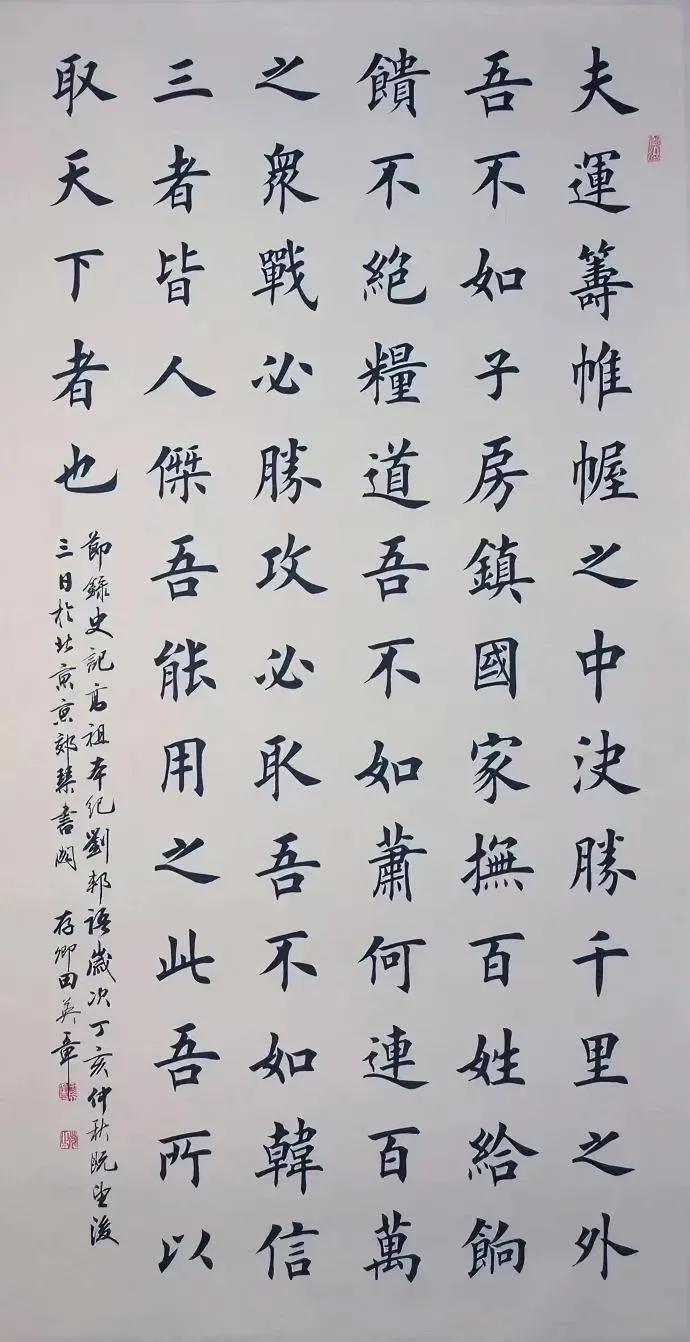 夫運籌帷幄之中決勝千里之外
吾不如子房鎮國家撫百姓給餉
饋不絕糧道吾不如蕭何連百萬
之衆戰必勝攻必取吾不如韓信
三者皆人傑吾能用之此吾所以
取天下者也
節錄史記高祖本纪劉邦語歲次丁亥仲秋既望後
三日於北京京郊琹書閣 存卿田英章